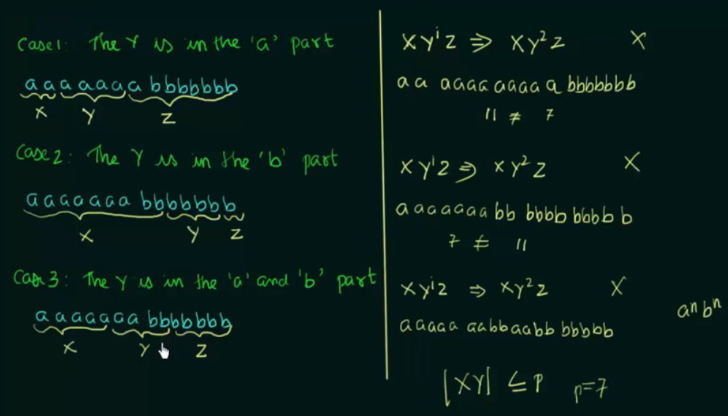 Case1: The Y is in the 'a' part
aaaaaaabbbbbbb
X Y Z
Case2: The Y is in the 'b' part
aaaaaaabbbbbbb
X Y Z
Case3: The Y is in the 'a' and 'b' part
aaaaaaabbbbbbb
X Y Z
XYⁱZ ⇒ XY²Z X
aa aaaa aaaa a bbbbbbb
11 ≠ 7
XYⁱZ ⇒ XY²Z X
aaaaaaabb bbbb bbbb b
7 ≠ 11
XYⁱZ ⇒ XY²Z X
aⁿbⁿ
aaaaa aabbaabb bbbbb
|XY| ≤ P p=7